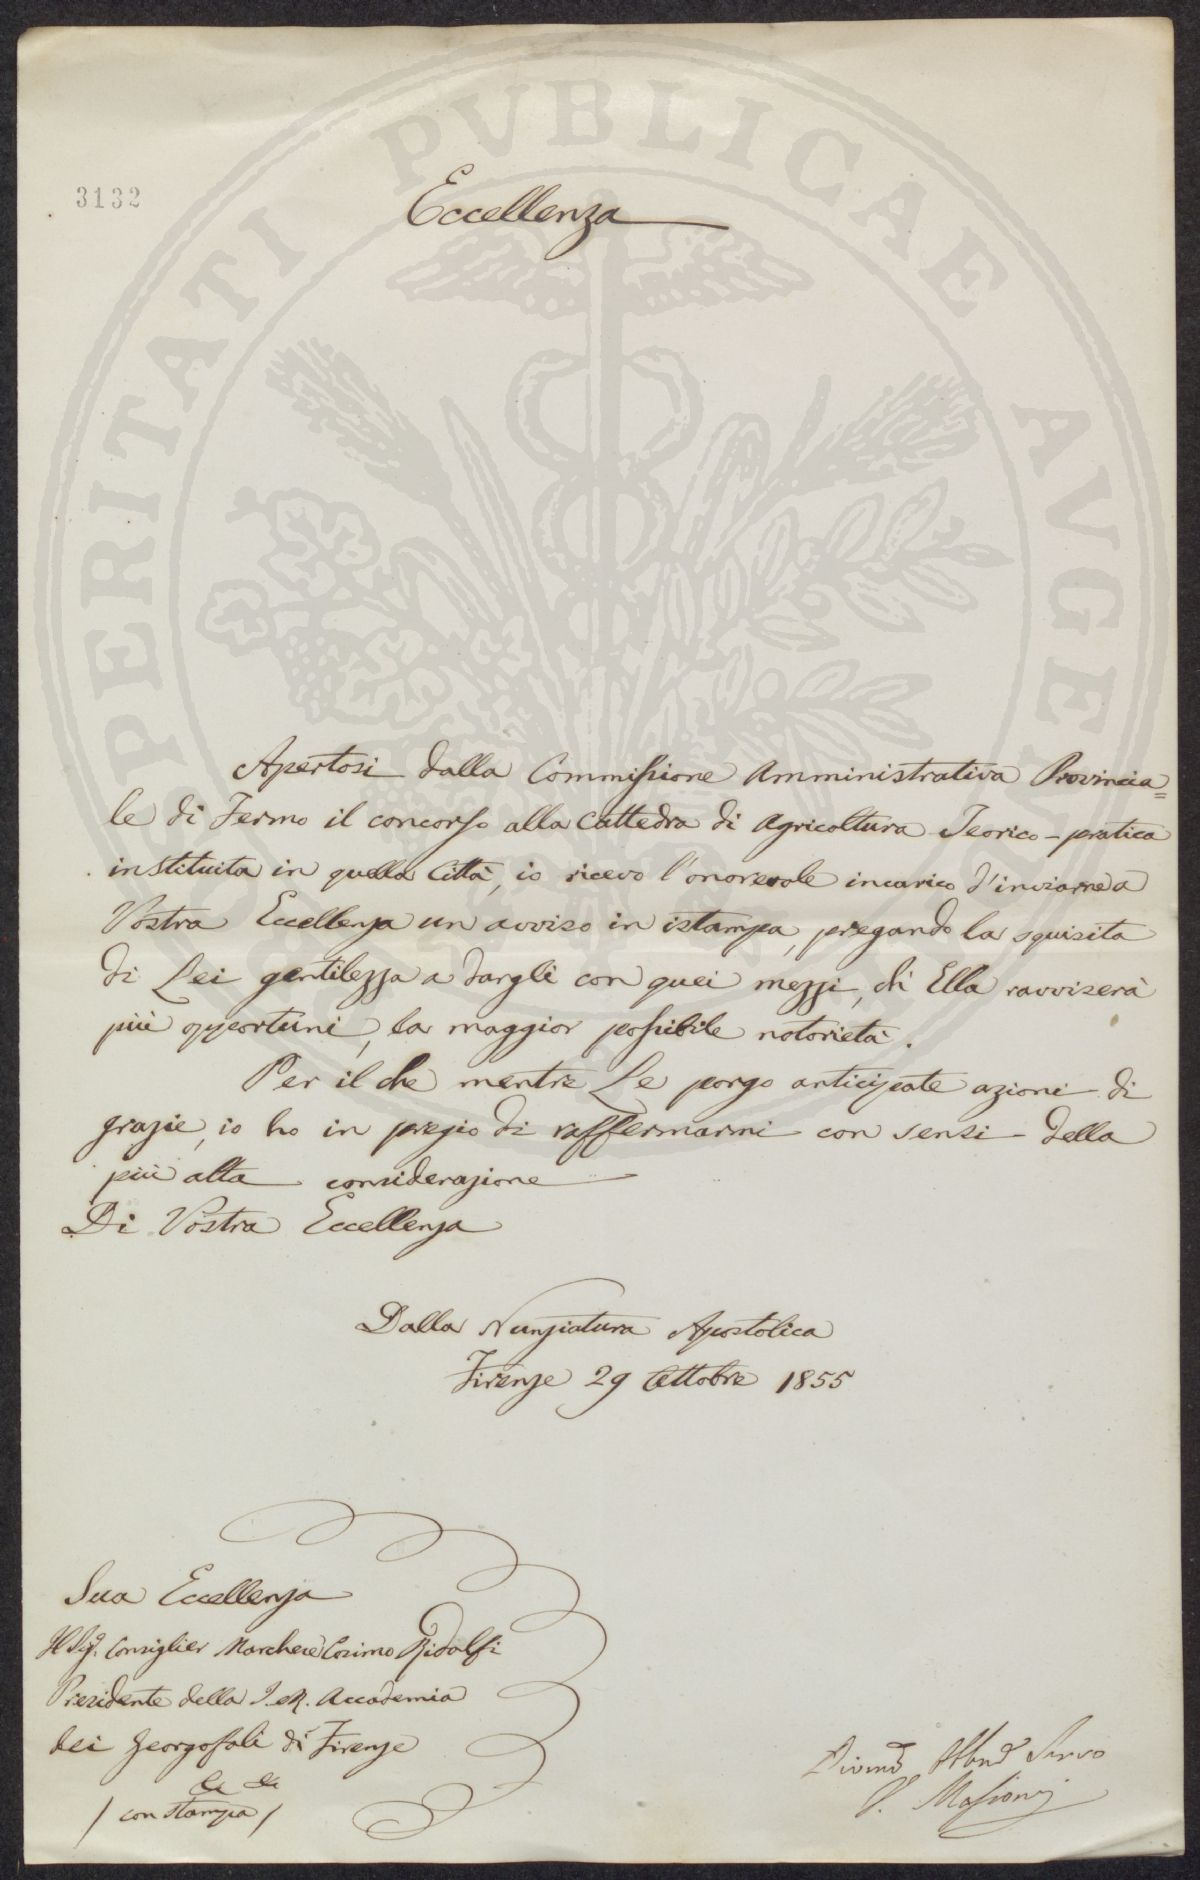 PROSPERITATI PVBLICAE AVGENDAE
3132
Eccellenza
Apertosi dalla Commissione Amministrativa Provincia=
le di Fermo il concorso alla Cattedra di Agricoltura Teorico-pratica
instituita in quella Città, io ricevo l'onorevole incarico d'inviarne a
Vostra Eccellenza un avviso in istampa, pregando la squisita
di Lei gentilezza a dargli con quei mezzi, ch'Ella ravviserà
più opportuni, la maggior possibile notorietà.
Per il che mentre Le porgo anticipate azioni di
grazie, io ho in pregio di raffermarmi con sensi della
più alta considerazione
Di Vostra Eccellenza
Dalla Nunziatura Apostolica
Firenze 29 Ottobre 1855
Sua Eccellenza
Il Sigr. Consiglier Marchese Cosimo Ridolfi
Presidente della I. e R. Accademia
dei Georgofali di Firenze
/ con stampa /
Servo
V. Massoni